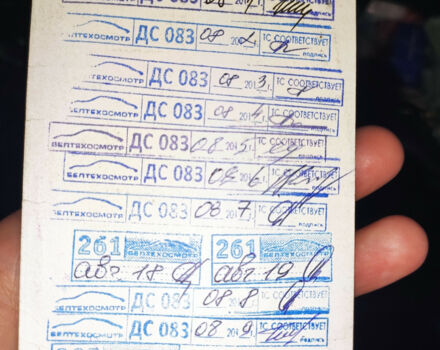 ДС 083 08
БЕЛТЕХОСМОТР ДС 083 08 20 г. ТС СООТВЕТСТВУЕТ подпись
БЕЛТЕХОСМОТР ДС 083 08 2013г. ТС СООТВЕТСТВУЕТ подпись
БЕЛТЕХОСМОТР ДС 083 08 2014г. ТС СООТВЕТСТВУЕТ подпись
БЕЛТЕХОСМОТР ДС 083 08 2015г. ТС СООТВЕТСТВУЕТ подпись
БЕЛТЕХОСМОТР ДС 083 08 6 г. ТС СООТВЕТСТВУЕТ подпись
БЕЛТЕХОСМОТР ДС 083 08 7 г. ТС СООТВЕТСТВУЕТ подпись
261 БЕЛТЕХОСМОТР 261 БЕЛТЕХОСМОТР
авг 18 авг 19
БЕЛТЕХОСМОТР ДС 083 08 8 г. ТС СООТВЕТСТВУЕТ подпись
БЕЛТЕХОСМОТР ДС 083 08 20 9 г. ТС СООТВЕТСТВУЕТ подпись